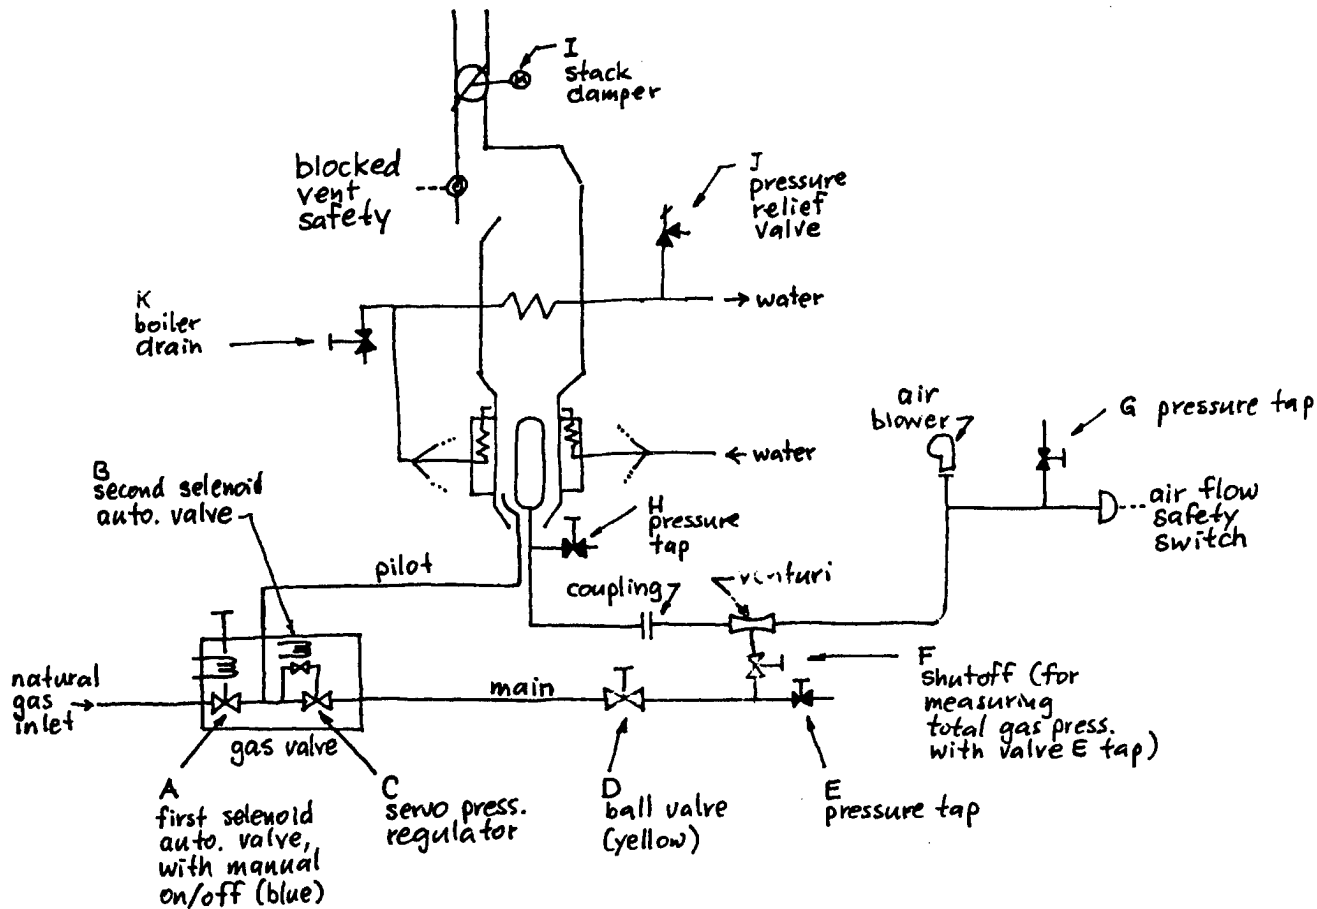 I
stack
damper
blocked
vent
safety
J
pressure
relief
valve
K
boiler
drain
→ water
air
blower
G pressure tap
← water
B
second selenoid
auto. valve
H
pressure
tap
air flow
safety
switch
pilot
coupling
venturi
natural
gas
inlet
main
F
shutoff (for
measuring
total gas press.
with valve E tap)
gas valve
A
first selenoid
auto. valve,
with manual
on/off (blue)
C
servo press.
regulator
D
ball valve
(yellow)
E
pressure tap